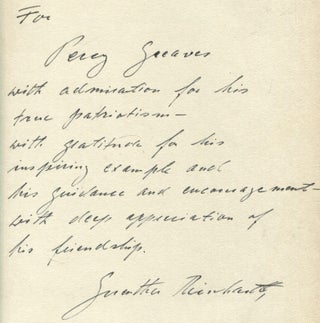 For
Percy Greaves
with admiration for his
true patriotism—
with gratitude for his
inspiring example and
his guidance and encouragement—
with deep appreciation of
his friendship.
Guenther Reinhardt